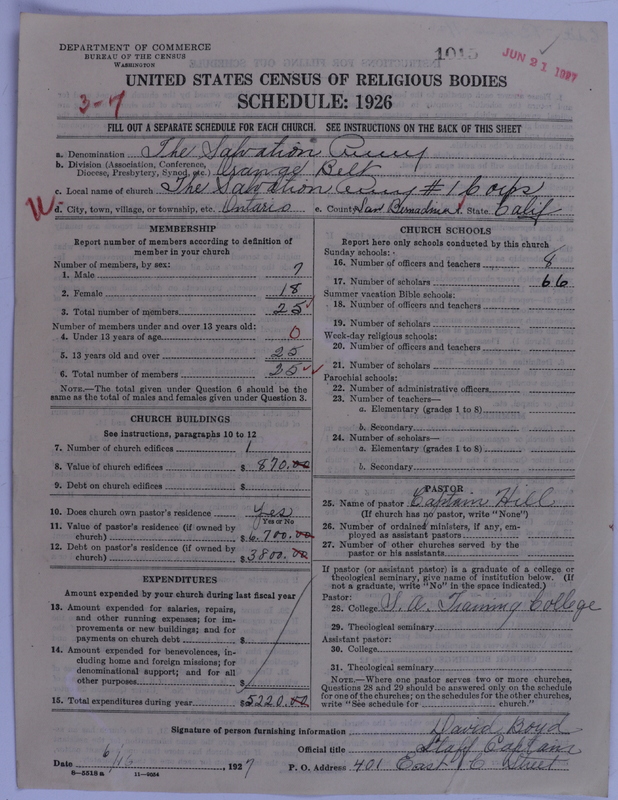 DEPARTMENT OF COMMERCE
BUREAU OF THE CENSUS
WASHINGTON
1015
JUN 21 1927
UNITED STATES CENSUS OF RELIGIOUS BODIES
3-7
SCHEDULE: 1926
FILL OUT A SEPARATE SCHEDULE FOR EACH CHURCH. SEE INSTRUCTIONS ON THE BACK OF THIS SHEET
a. Denomination The Salvation Army
b. Division (Association, Conference, Diocese, Presbytery, Synod, etc.) Orange Belt
c. Local name of church The Salvation Army #1 Corps
W
d. City, town, village, or township, etc. Ontario e. County San Bernadino f. State Calif
MEMBERSHIP
Report number of members according to definition of
member in your church
Number of members, by sex:
1. Male 7
2. Female 18
3. Total number of members 25
Number of members under and over 13 years old:
4. Under 13 years of age 0
5. 13 years old and over 25
6. Total number of members 25
NOTE.—The total given under Question 6 should be the
same as the total of males and females given under Question 3.
CHURCH BUILDINGS
See instructions, paragraphs 10 to 12
7. Number of church edifices 1
8. Value of church edifices $ 870.00
9. Debt on church edifices $
10. Does church own pastor's residence Yes
Yes or No
11. Value of pastor's residence (if owned by
church) $ 6,700.00
12. Debt on pastor's residence (if owned by
church) $ 3800.00
EXPENDITURES
Amount expended by your church during last fiscal year
13. Amount expended for salaries, repairs,
and other running expenses; for im-
provements or new buildings; and for
payments on church debt $
14. Amount expended for benevolences, in-
cluding home and foreign missions; for
denominational support; and for all
other purposes $
15. Total expenditures during year $ 5220.00
CHURCH SCHOOLS
Report here only schools conducted by this church
Sunday schools:
16. Number of officers and teachers 8
17. Number of scholars 66
Summer vacation Bible schools:
18. Number of officers and teachers
19. Number of scholars
Week-day religious schools:
20. Number of officers and teachers
21. Number of scholars
Parochial schools:
22. Number of administrative officers
23. Number of teachers—
a. Elementary (grades 1 to 8)
b. Secondary
24. Number of scholars—
a. Elementary (grades 1 to 8)
b. Secondary
PASTOR
25. Name of pastor Captain Hill
(If church has no pastor, write "None")
26. Number of ordained ministers, if any, em-
ployed as assistant pastors
27. Number of other churches served by the
pastor or his assistants
If pastor (or assistant pastor) is a graduate of a college or
theological seminary, give name of institution below. (If
not a graduate, write "No" in the space indicated.)
Pastor:
28. College S. A. Training College
29. Theological seminary
Assistant pastor:
30. College
31. Theological seminary
NOTE.—Where one pastor serves two or more churches,
Questions 28 and 29 should be answered only on the schedule
for one of the churches; on the schedules for the other churches,
write "See schedule for church."
Signature of person furnishing information David Boyd
Official title Staff Captain
Date 6/16, 1927 P. O. Address 401 East C Street
8-5518 a 11-9034